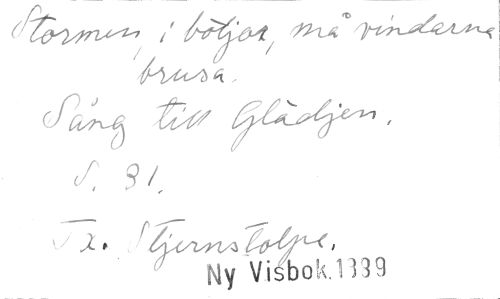 Stormen, i böljor, må vindarna
brusa.
Sång till Glädjen.
S. 31.
Tx. Stjernstolpe.
Ny Visbok. 1839